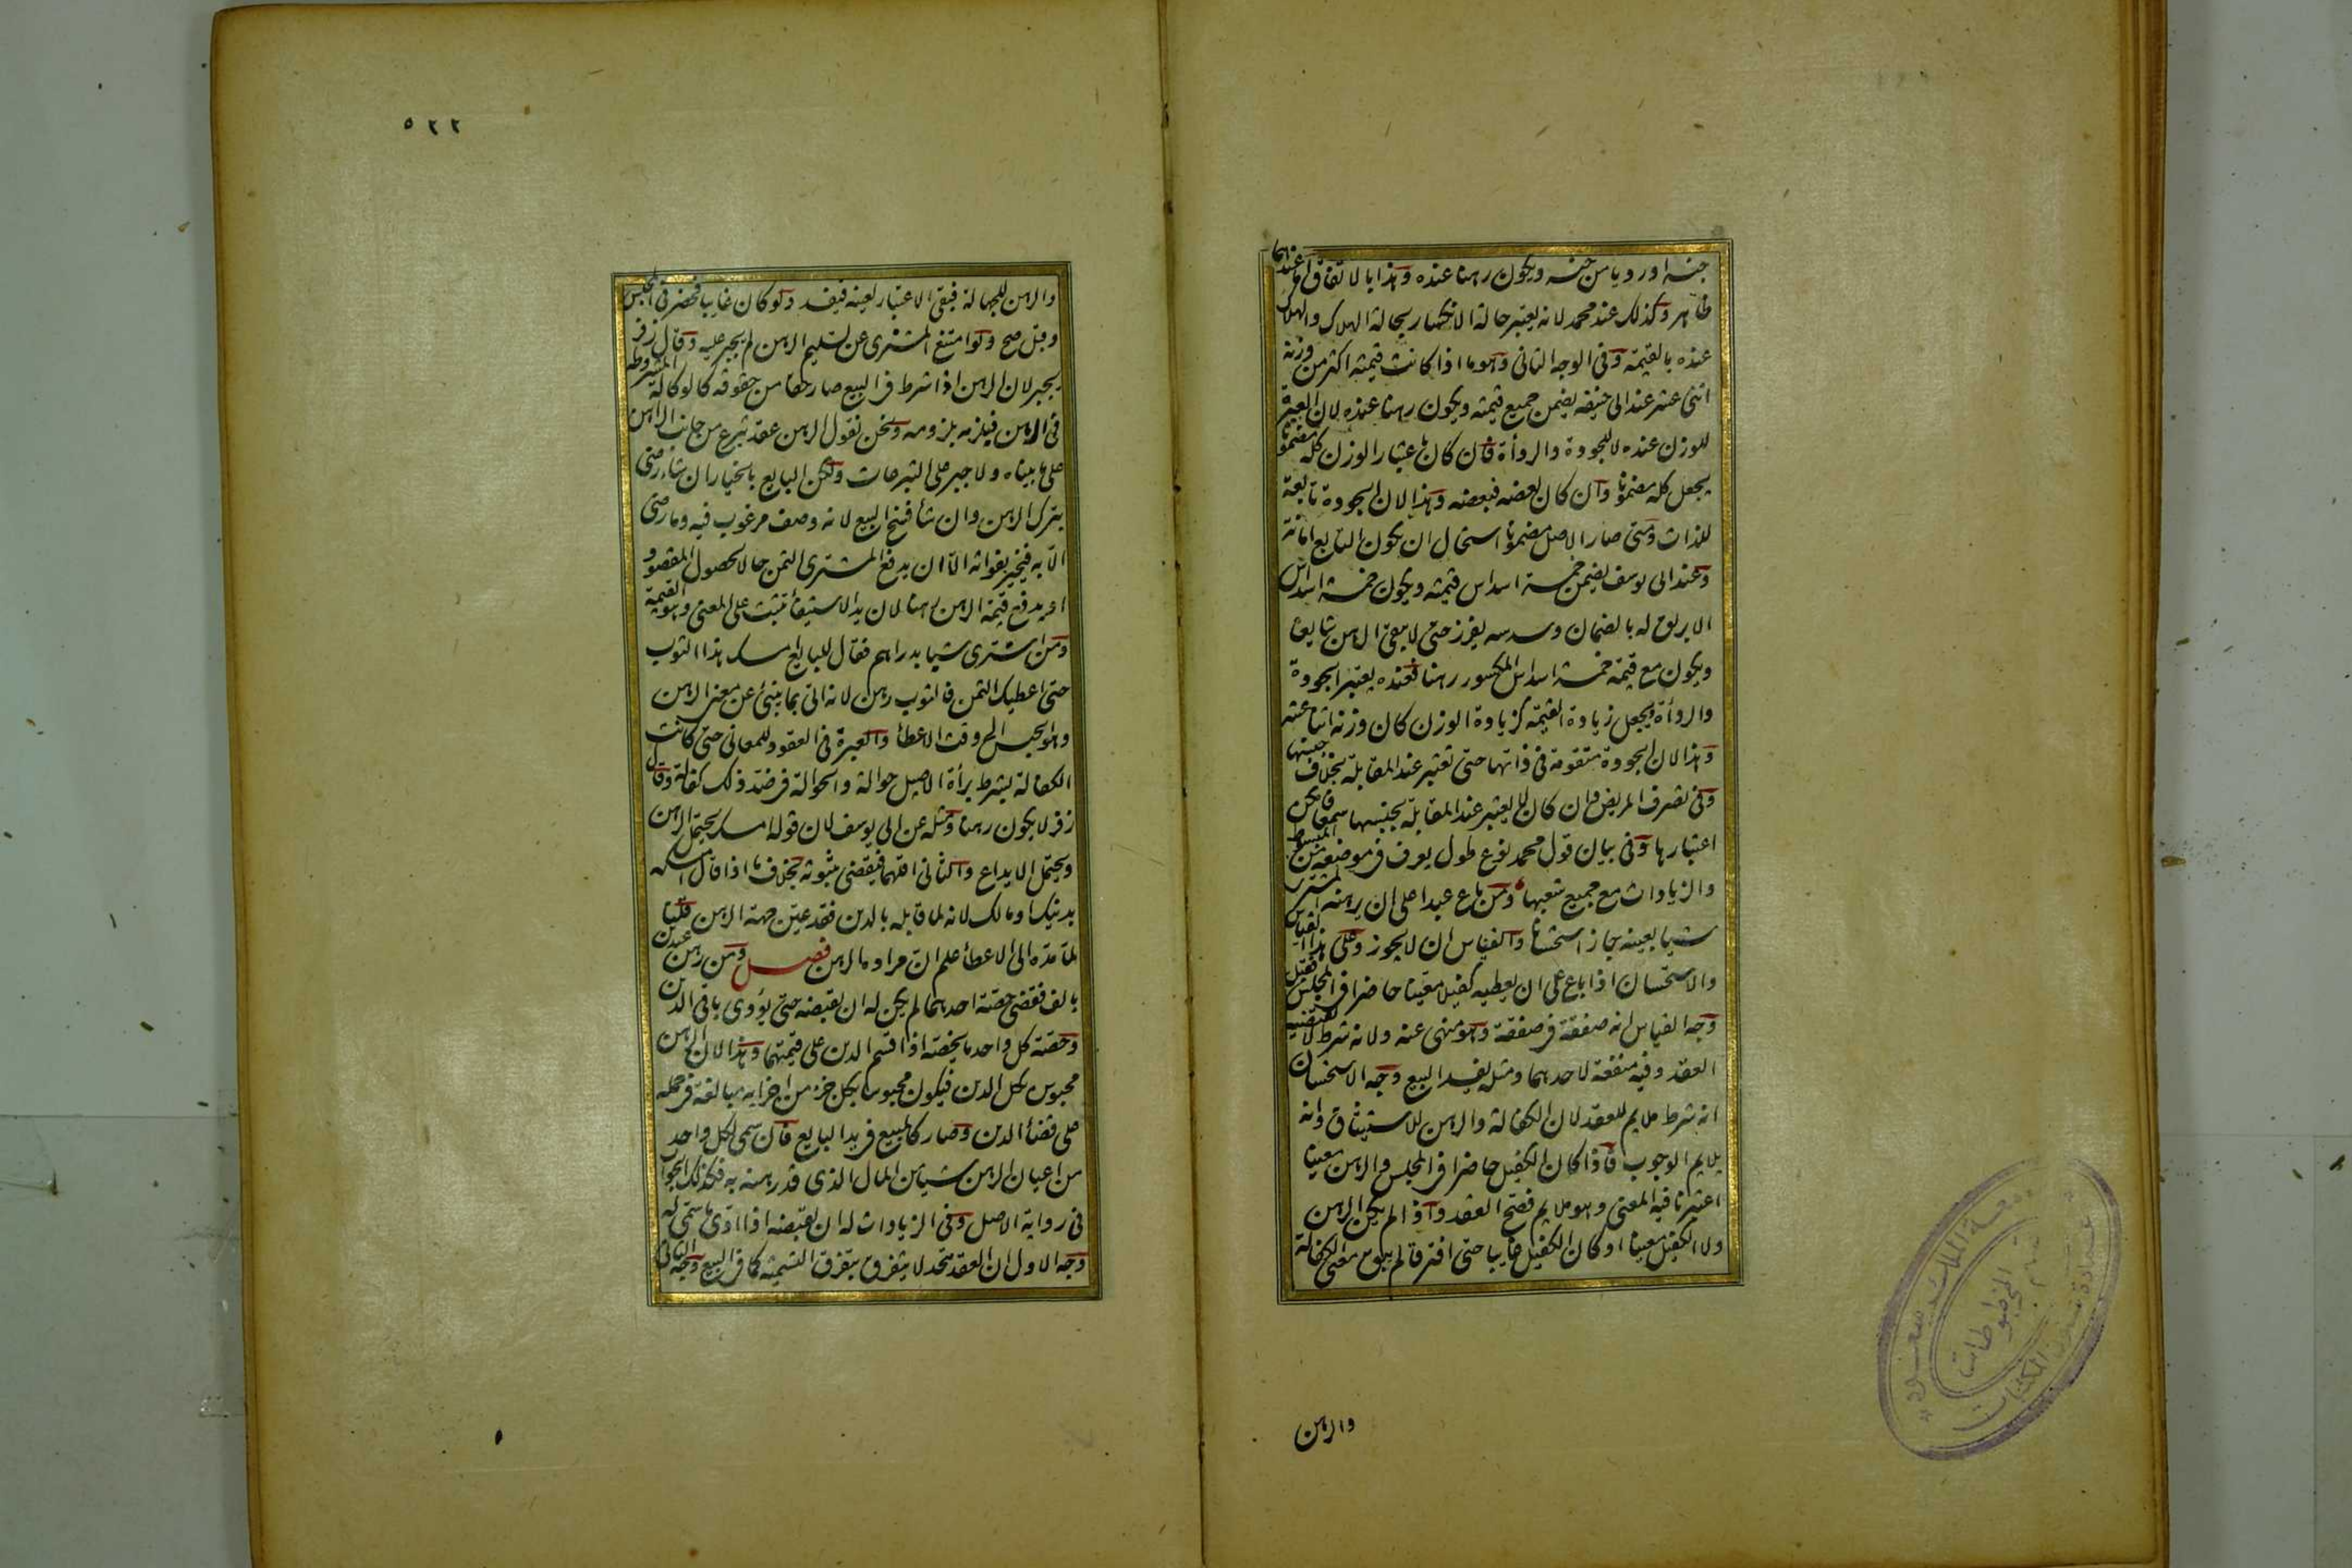 جنسه او رديا من جنسه ويكون رهنا عنده وهذا بالاتفاق اما عندهما
فظاهر وكذلك عند محمد لانه يعتبر حالة الانكسار بحالة الهلاك والهلاك
عنده بالقيمة وفى الوجه الثانى وهو ما اذا كانت قيمته اكثر من وزنه
اثنى عشر عند ابى حنيفه يضمن جميع قيمته ويكون رهنا عنده لان العبرة
للوزن عنده لا للجودة والردأة فان كان باعتبار الوزن كله مضمونا
يجعل كله مضمونا وان كان بعضه فبعضه وهذا لان الجودة تابعة
للذات ومتى صار الاصل مضمونا استحال ان يكون التابع امانة
وعند ابى يوسف يضمن خمسة اسداس قيمته ويكون خمسة اسداس
الابريق له بالضمان وسدسه يفرز حتى لا يبقى الرهن شايعا
ويكون مع قيمة خمسة اسداس المكسور رهنا فعنده يعتبر الجودة
والردأة ويجعل زيادة القيمة كزيادة الوزن كان وزنه اثنا عشر
وهذا لان الجودة متقومة فى ذاتها حتى تعتبر عند المقابلة بخلاف جنسها
وفى تصرف المريض وان كان لا يعتبر عند المقابلة بجنسها سمعا فامكن
اعتبارها وفى بيان قول محمد نوع طول يعرف فى موضعه من المبسوط
والزيادات مع جميع شعبها ومن باع عبدا على ان يرهنه المشترى
شيا بعينه جاز استحسانا والقياس ان لا يجوز وعلى هذا القياس
والاستحسان اذا باع على ان يعطيه كفيلا معينا حاضرا فى المجلس فقبل
وجه القياس انه صفقة فى صفقة وهو منهى عنه ولانه شرط لا يقتضيه
العقد وفيه منفعة لاحدهما ومثله يفسد البيع وجه الاستحسان
انه شرط ملايم للعقد لان الكفالة والرهن للاستيثاق وانه
يلايم الوجوب فاذا كان الكفيل حاضرا فى المجلس والرهن معينا
اعتبرنا فيه المعنى وهو ملايم فصح العقد واذا لم يكن الرهن
ولا الكفيل معينا او كان الكفيل غايبا حتى افترقا لم يبق معنى الكفالة
والرهن
٥٢٢
والرهن للجهالة فبقى الاعتبار لعينه فيفسد ولو كان غايبا فحضر فى المجلس
وقبل صح ولو امتنع المشترى عن تسليم الرهن لم يجبر عليه وقال زفر
يجبر لان الرهن اذا شرط فى البيع صار حقا من حقوقه كالوكالة المشروطة
فى الرهن فيلزمه بلزومه ونحن نقول الرهن عقد تبرع من جانب الراهن
على ما بيناه ولا جبر على التبرعات ولكن البايع بالخيار ان شاء رضى
بترك الرهن وان شاء فسخ البيع لانه وصف مرغوب فيه وما رضى
الا به فيخير بفواته الا ان يدفع المشترى الثمن حالا لحصول المقصود
او يدفع قيمة الرهن رهنا لان يد الاستيفاء تثبت على المعنى وهو القيمة
ومن اشترى شيا بدراهم فقال للبايع امسك هذا الثوب
حتى اعطيك الثمن فالثوب رهن لانه اتى بما ينبئ عن معنى الرهن
وهو الحبس الى وقت الاعطاء والعبرة فى العقود للمعانى حتى كانت
الكفالة بشرط برأة الاصيل حوالة والحوالة فى ضد ذلك كفالة وقال
زفر لا يكون رهنا ومثله عن ابى يوسف لان قوله امسك يحتمل الرهن
ويحتمل الايداع والثانى اقلهما فيقضى بثبوته بخلاف ما اذا قال امسكه
بدينك او مالك لانه لما قابله بالدين فقد عين جهة الرهن قلنا
لما مده الى الاعطاء علم ان مراده الرهن فصل ومن رهن عبدين
بالف فقضى حصة احدهما لم يكن له ان يقبضه حتى يؤدى باقى الدين
وحصة كل واحد ما يخصه اذا قسم الدين على قيمتهما وهذا لان الرهن
محبوس بكل الدين فيكون محبوسا بكل جزء من اجزايه مبالغة فى حمله
على قضاء الدين وصار كالمبيع فى يد البايع فان سمى لكل واحد
من اعيان الرهن شيا من المال الذى قد رهنه به فكذلك الجواب
فى رواية الاصل وفى الزيادات له ان يقبضه اذا ادى ما سمى له
وجه الاول ان العقد متحد لا يتفرق بتفرق التسمية كما فى البيع وجه الثانى
المخطوطات